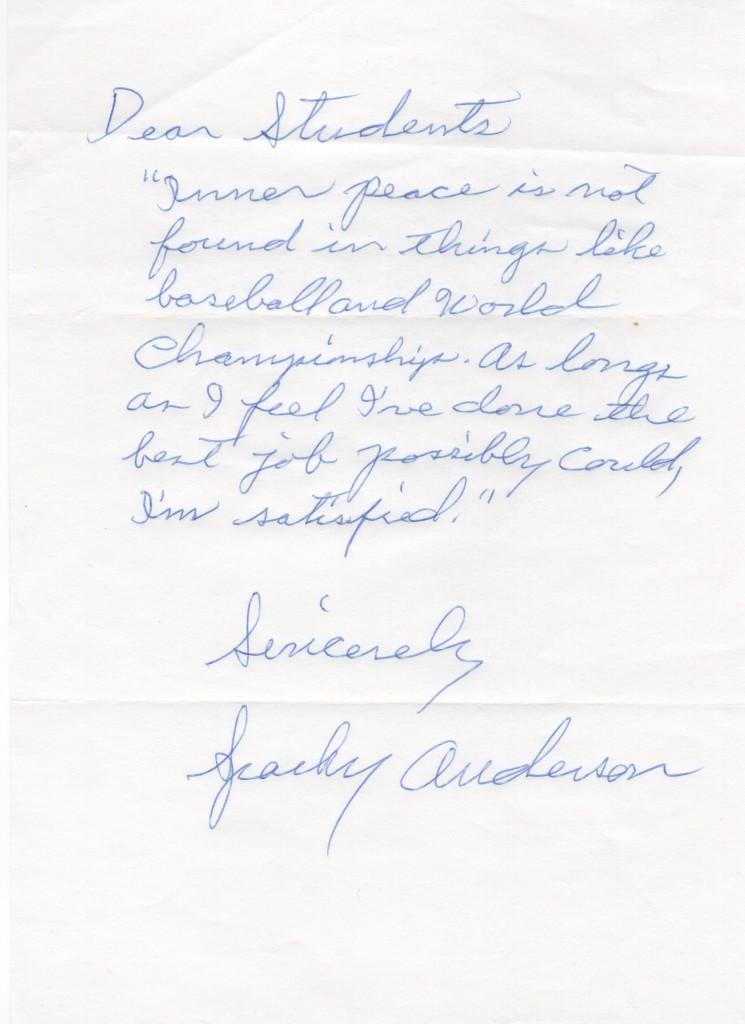 Dear Students
"Inner peace is not
found in things like
baseball and World
Championships. As long
as I feel I've done the
best job possibly could,
I'm satisfied."
Sincerely
Sparky Anderson